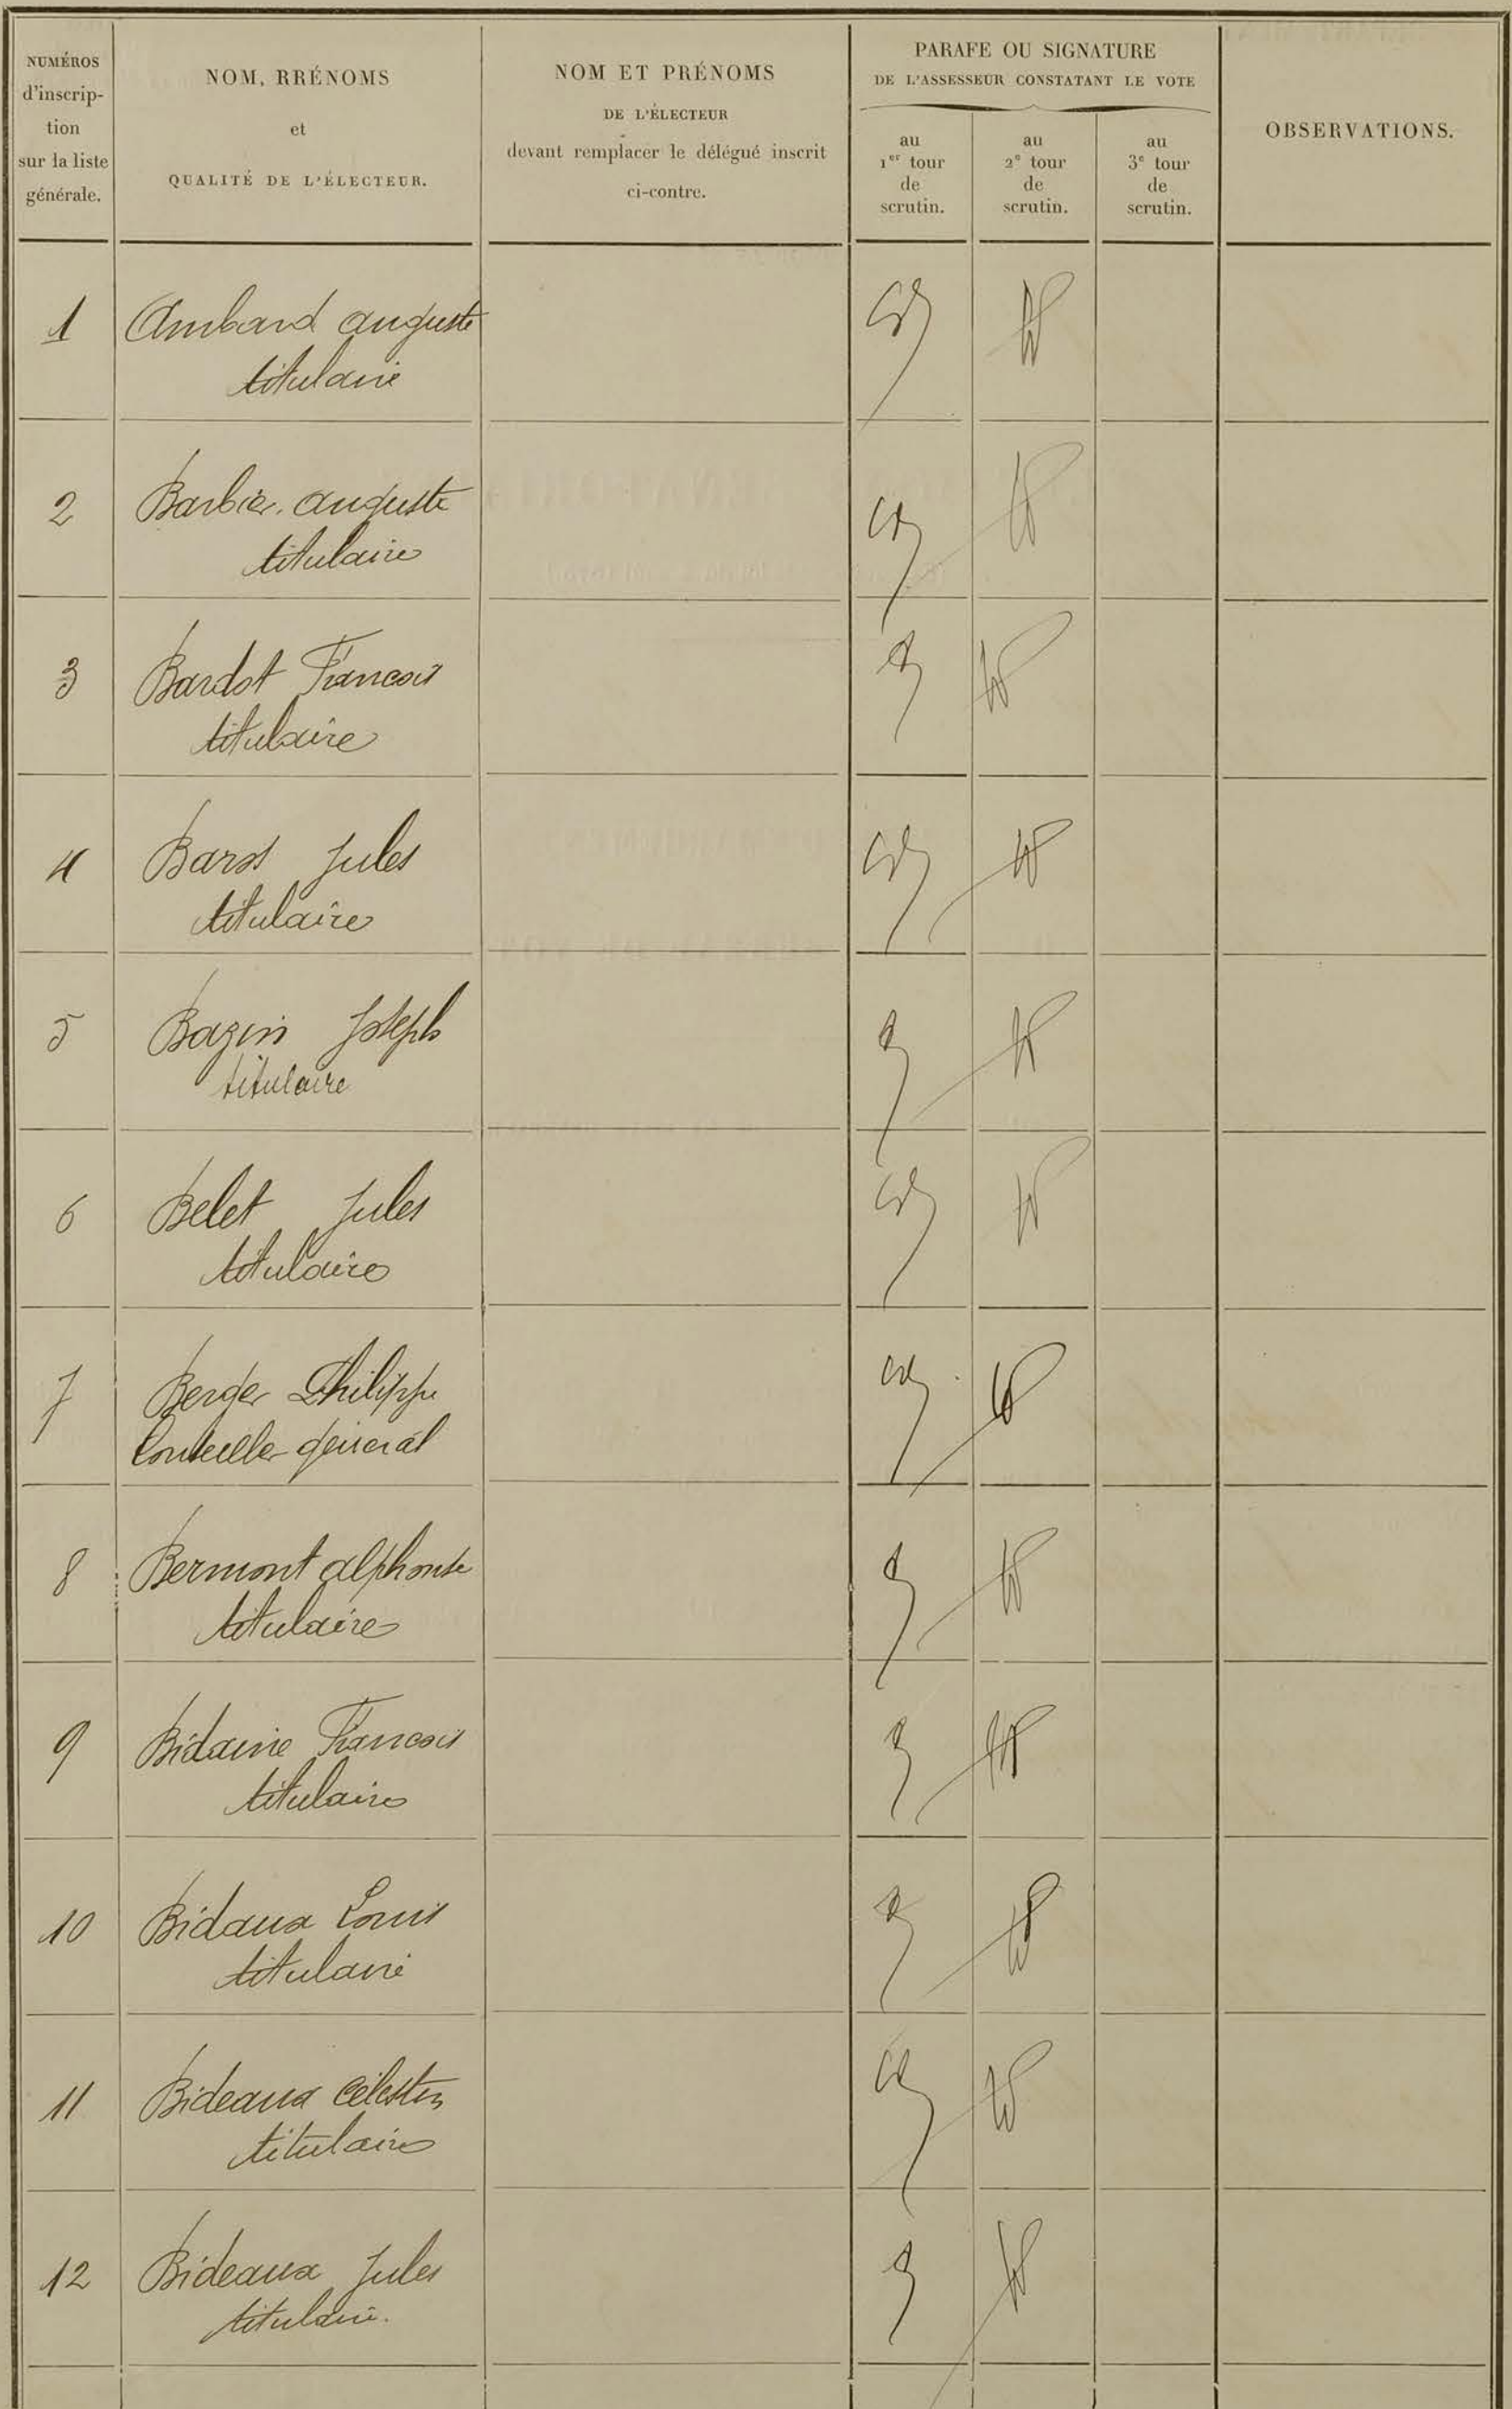 NUMÉROS
d'inscrip-
tion
sur la liste
générale.
NOM, RRÉNOMS
et
QUALITÉ DE L'ÉLECTEUR.
NOM ET PRÉNOMS
DE L'ÉLECTEUR
devant remplacer le délégué inscrit
ci-contre.
PARAFE OU SIGNATURE
DE L'ASSESSEUR CONSTATANT LE VOTE
au
1er tour
de
scrutin.
au
2e tour
de
scrutin.
au
3e tour
de
scrutin.
OBSERVATIONS.
1 Ambard auguste
titulaire
2 Barbier auguste
titulaire
3 Bardot Francois
titulaire
4 Jules
titulaire
5 Bazin Joseph
titulaire
6 Belet Jules
titulaire
7 Berger Philippe
Conseiller général
8 Bermont alphonse
titulaire
9 Bidaine Francois
titulaire
10 Bidaux Louis
titulaire
11 Bideaux Célestin
titulaire
12 Bideaux Jules
titulaire.